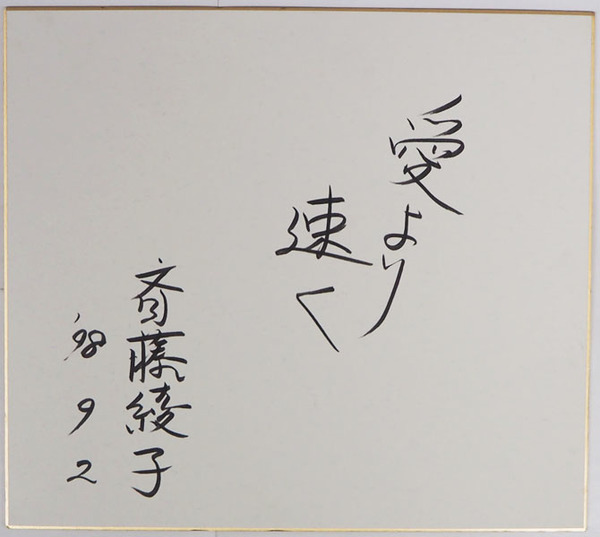 愛より
速く
斉藤綾子
'98 9 2